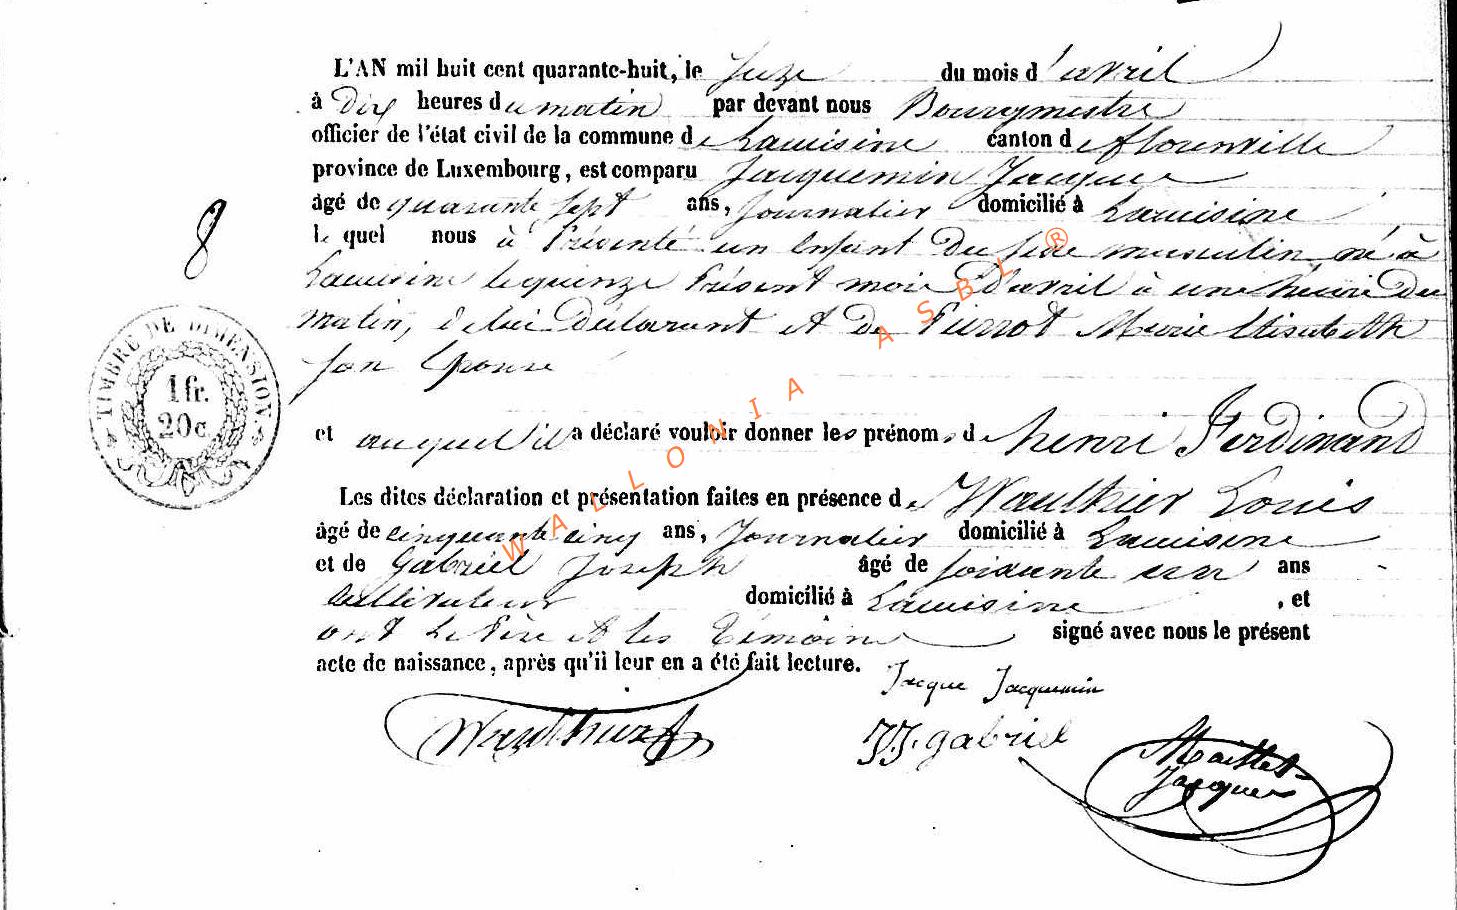 L'AN mil huit cent quarante-huit, le Seize du mois d'avril
à Dix heures du matin par devant nous Bourgmestre
officier de l'état civil de la commune de Lacuisine canton de florenville
province de Luxembourg, est comparu Jacquemin Jacques
âgé de quarante sept ans, Journalier domicilié à Lacuisine
le quel nous à Présenté un Enfant Du sexe masculin né à
Lacuisine le quinze Présent mois D'avril à une heure Du
matin, de lui Déclarant et De Pierrot Marie Elisabeth
son Epouse
et auquel il a déclaré vouloir donner les prénoms de henri Ferdinand
Les dites déclaration et présentation faites en présence de Wauthier Louis
âgé de cinquante cinq ans, Journalier domicilié à Lacuisine
et de Gabriel Joseph âgé de soixante ans
cultivateur domicilié à Lacuisine, et
ont Le Père et les Témoins signé avec nous le présent
acte de naissance, après qu'il leur en a été fait lecture.
Jacque Jacquemin
Wauthier
JJ. gabriel
Maillet
Jacques
8
TIMBRE DE DIMENSION
1 fr.
20 c
WALLONIA ASBL ®